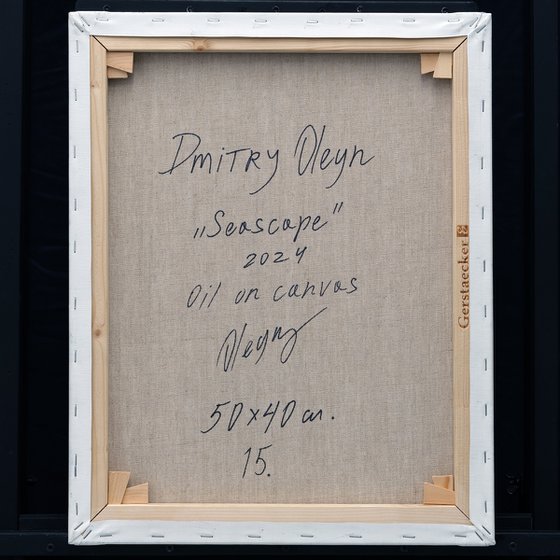 Dmitry Oleyn
„Seascape"
2024
Oil on canvas
Oleyn
50x40 cm.
15.
Gerstaecker